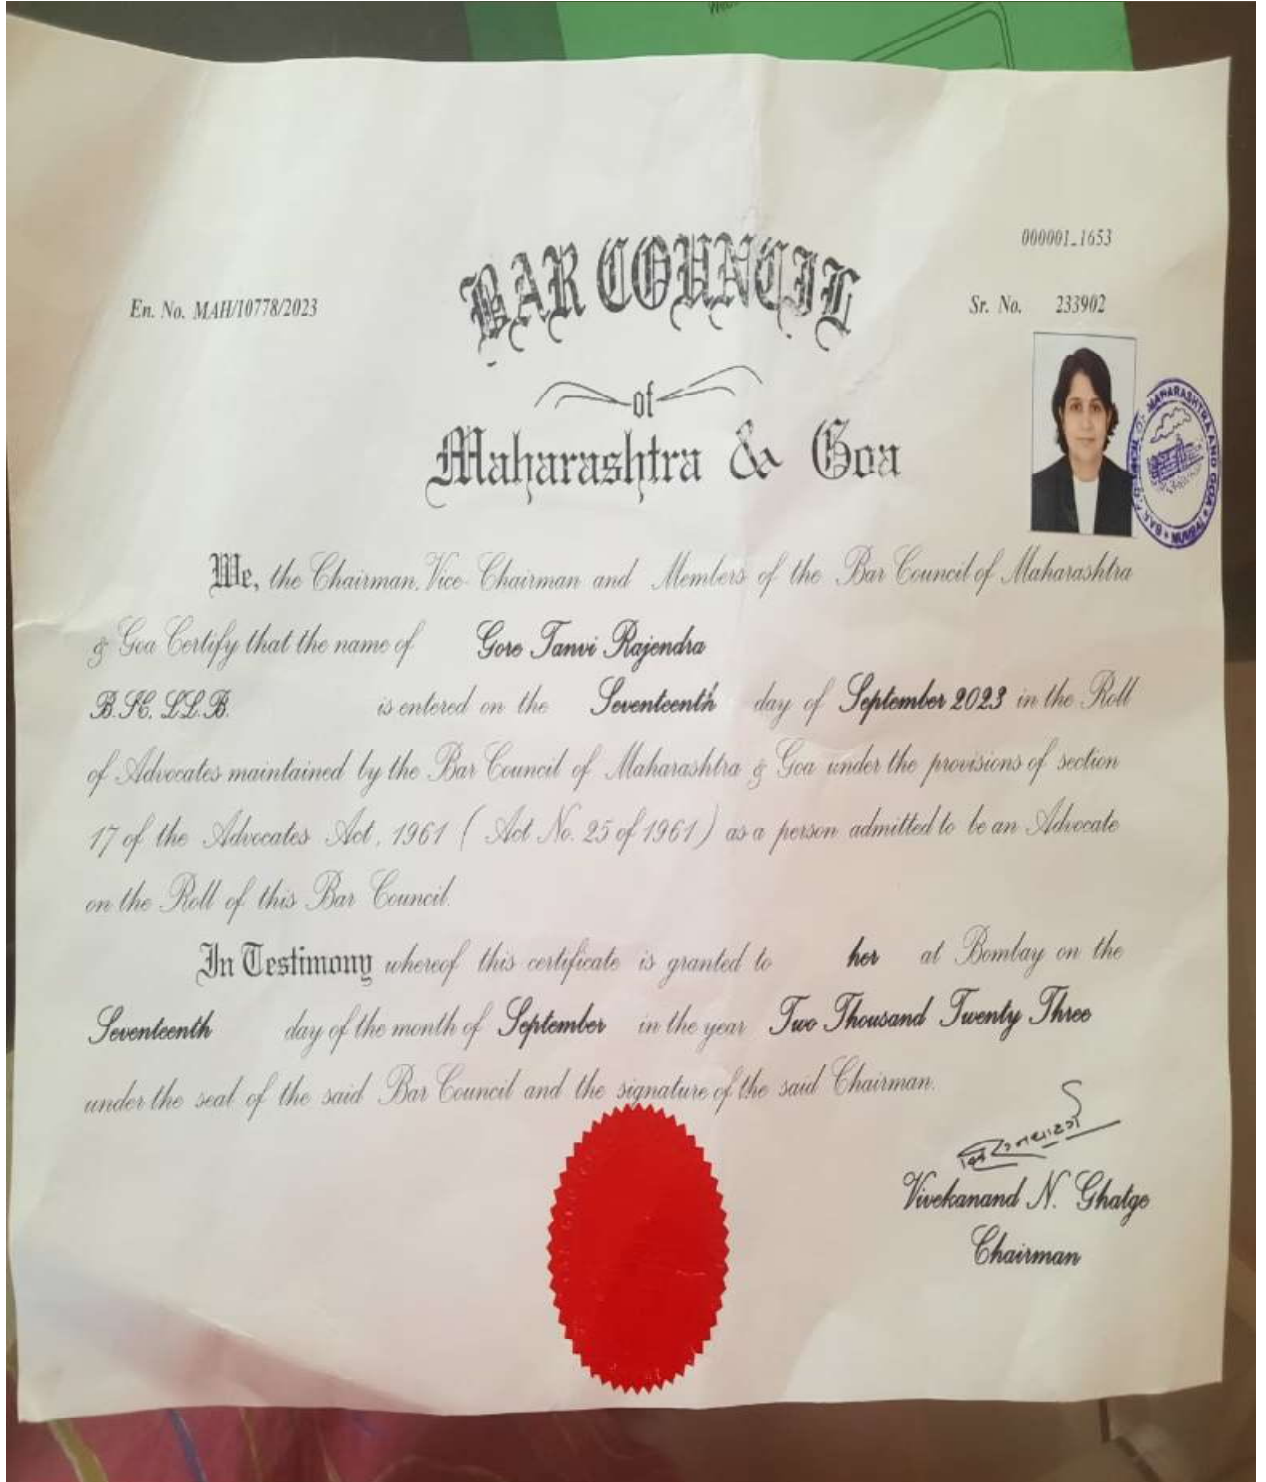 000001-1653
En. No. MAH/10778/2023
Sr. No. 233902
BAR COUNCIL
of
Maharashtra & Goa
BAR COUNCIL OF MAHARASHTRA AND GOA * MUMBAI *
We, the Chairman, Vice-Chairman and Members of the Bar Council of Maharashtra
& Goa Certify that the name of Gore Tanvi Rajendra
B.SC. LL.B. is entered on the Seventeenth day of September 2023 in the Roll
of Advocates maintained by the Bar Council of Maharashtra & Goa under the provisions of section
17 of the Advocates Act, 1961 ( Act No. 25 of 1961 ) as a person admitted to be an Advocate
on the Roll of this Bar Council.
In Testimony whereof this certificate is granted to her at Bombay on the
Seventeenth day of the month of September in the year Two Thousand Twenty Three
under the seal of the said Bar Council and the signature of the said Chairman.
Vivekanand N. Ghatge
Chairman